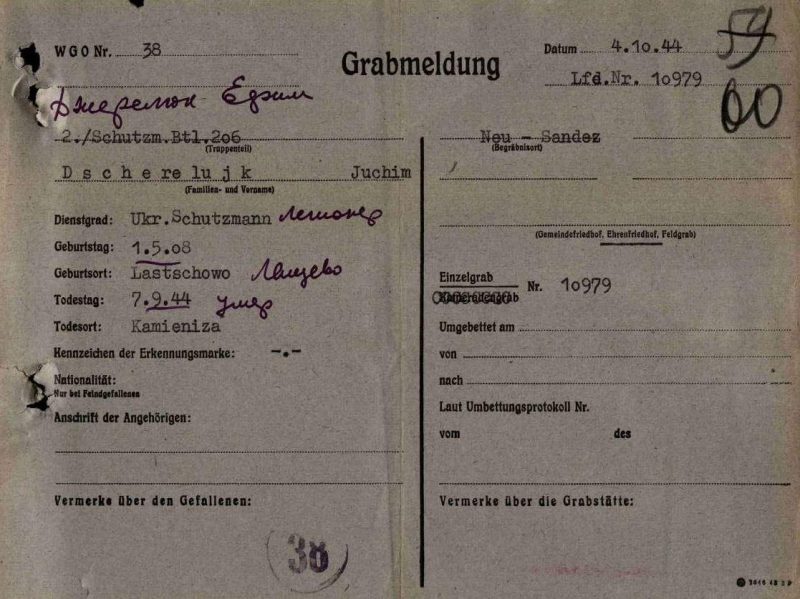 WGO Nr. 38
Джеремюк Ефим
2./Schutzm.Btl.206
(Truppenteil)
Dscherelujk Juchim
(Familien- und Vorname)
Dienstgrad: Ukr.Schutzmann Легионер
Geburtstag: 1.5.08
Geburtsort: Lastschowo Лащево
Todestag: 7.9.44 умер
Todesort: Kamieniza
Kennzeichen der Erkennungsmarke: -.-
Nationalität:
Nur bei Feindgefallenen
Anschrift der Angehörigen:
Vermerke über den Gefallenen:
38
Grabmeldung
Datum 4.10.44
Lfd.Nr. 10979
59
60
Neu - Sandez
(Begräbnisort)
(Gemeindefriedhof, Ehrenfriedhof, Feldgrab)
Einzelgrab
Kameradengrab
Nr. 10979
Umgebettet am
von
nach
Laut Umbettungsprotokoll Nr.
vom des
Vermerke über die Grabstätte: